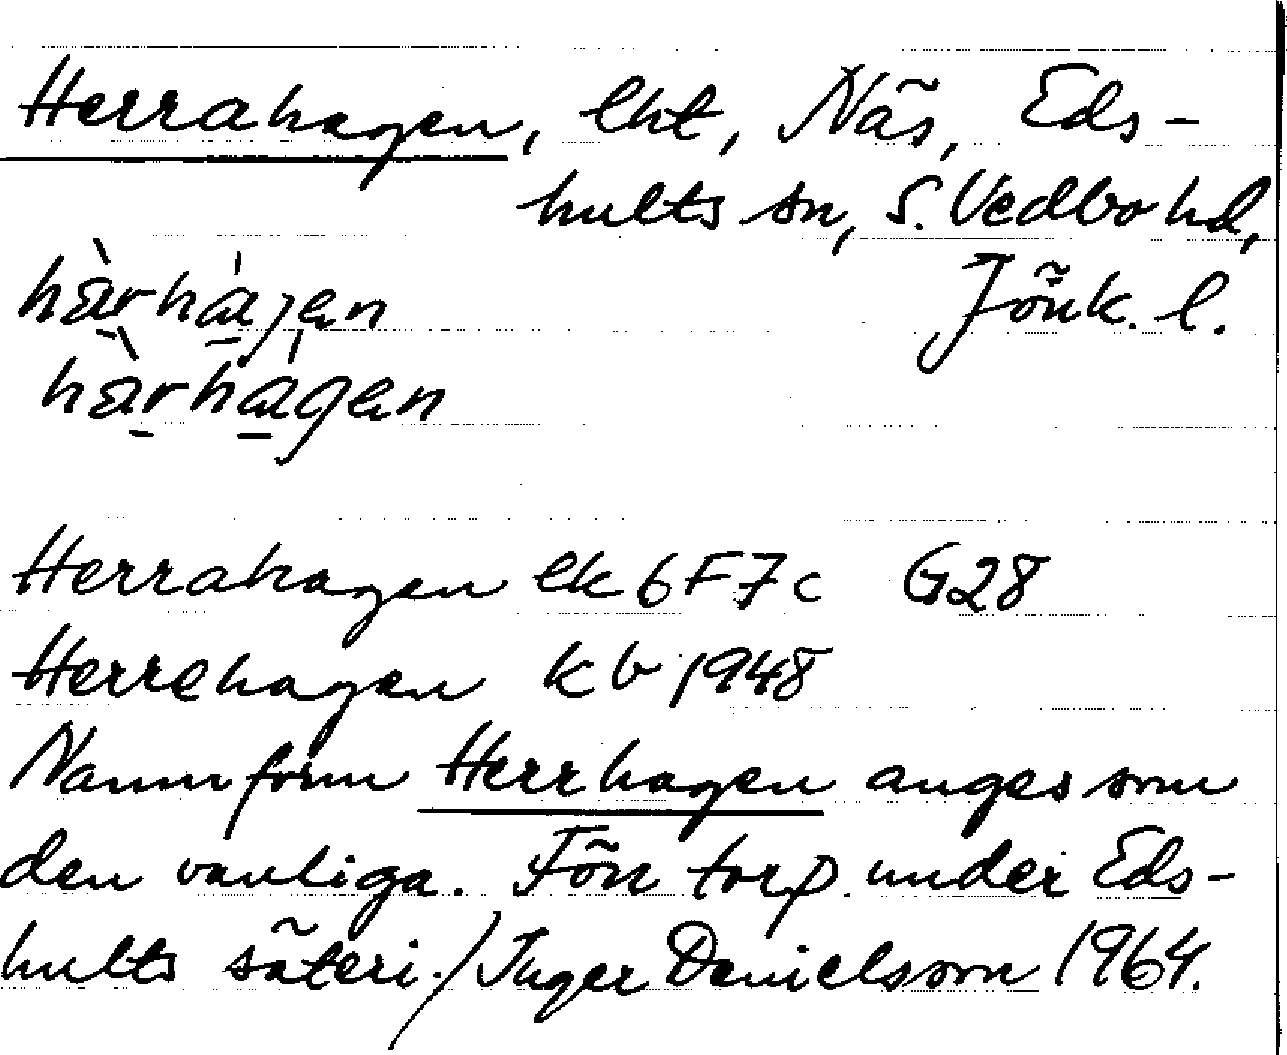 Herrahagen, lht, Näs, Eds-
hults sn, S. Vedbo hd,
Jönk. l.
hàrhágen
hàrhágen
Herrahagen ek 6F7c G28
Herrehagen kb 1948
Namnform Herrhagen anges som
den vanliga. Förr torp under Eds-
hults säteri./Inger Danielsson 1964.